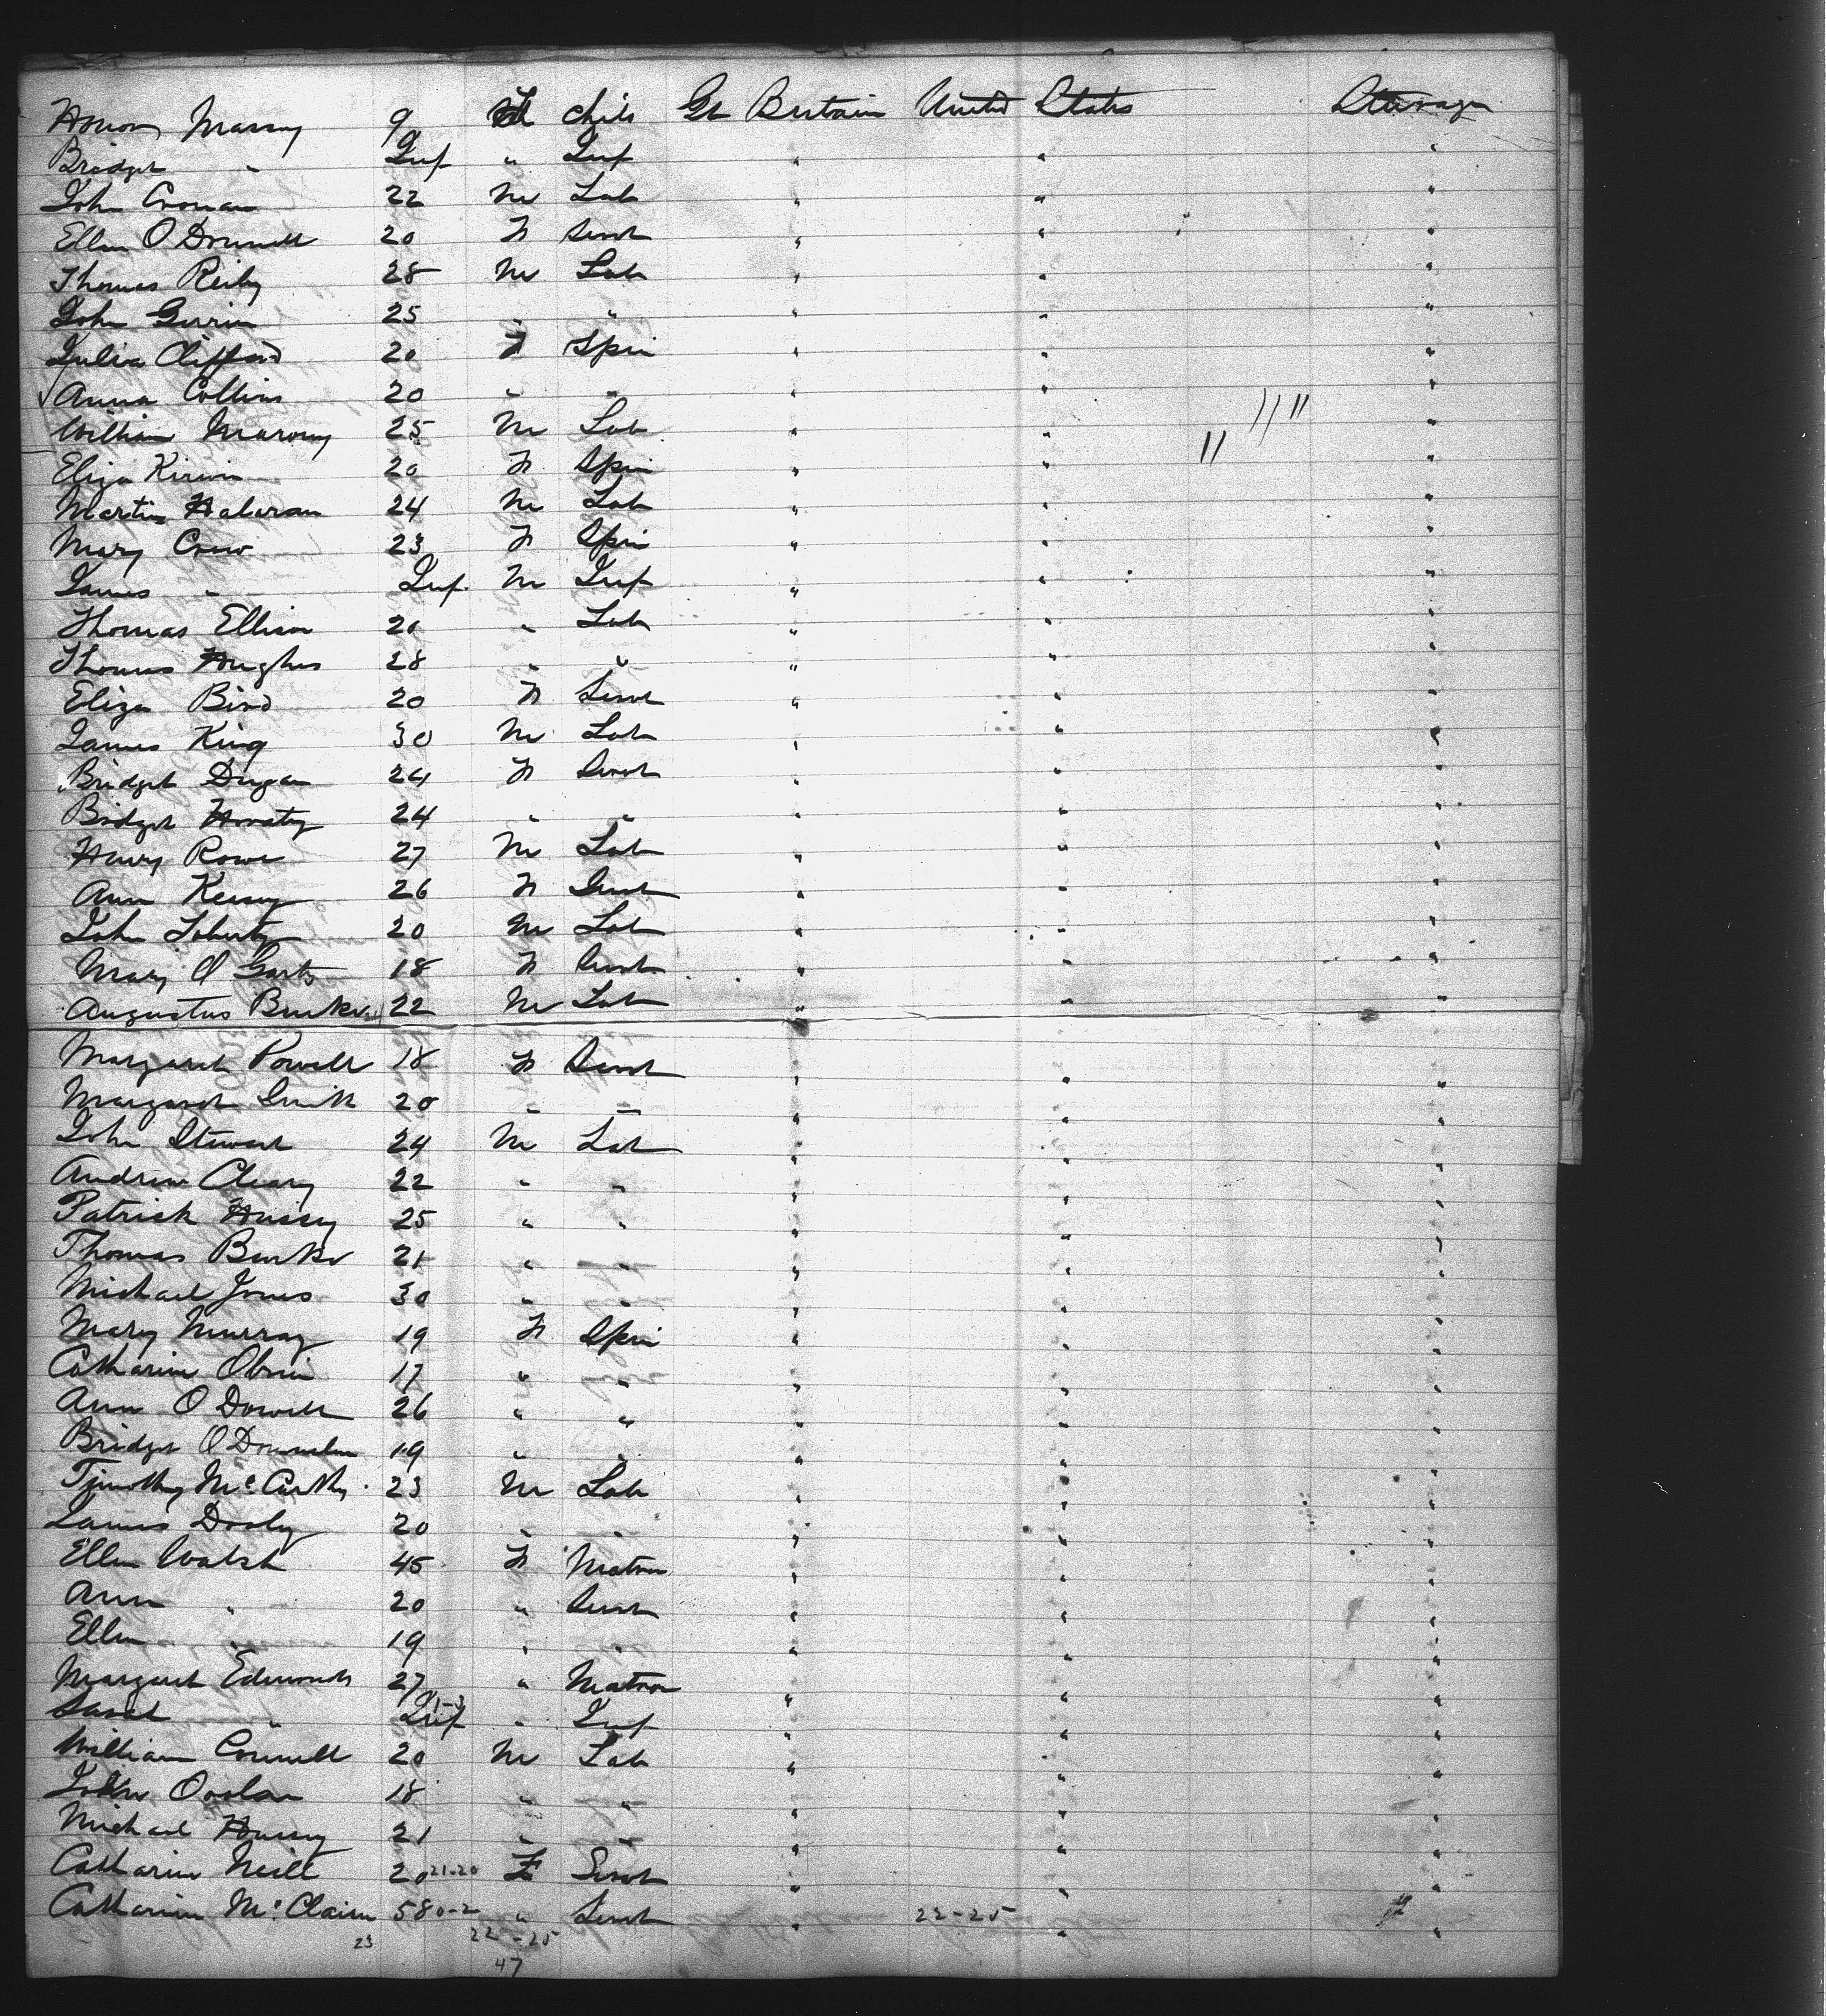 Honor Massey 9 F Child Gt Britain United States Steerage
Bridget " Inf " Inf " " "
John Cronan 22 M Lab " " "
Ellen O Donnell 20 F Servt " " "
Thomas Reily 28 M Lab " " "
John 25 " " " " "
Julia Clifford 20 F Spin " " "
Anna Collins 20 " " " " "
William Marony 25 M Lab " " "
Eliza Kirwin 20 F Spin " " "
Martin Halaran 24 M Lab " " "
Mary 23 F Spin " " "
James " Inf M Inf " " "
Thomas Ellison 20 " Lab " " "
Thomas Hughes 28 " " " " "
Eliza Bird 20 F Servt " " "
James King 30 M Lab " " "
Bridget Dugan 24 F Servt " " "
Bridget 24 " " " " "
Henry Rowe 27 M Lab " " "
Ann 26 F Servt " " "
John 20 M Lab " " "
Mary O 18 F Servt " " "
Augustus Burke 22 M Lab " " "
Margaret Powell 18 F Servt " " "
Margaret Smith 20 " " " " "
John Stewart 24 M Lab " " "
Andrew Cleary 22 " " " " "
Patrick Hussey 25 " " " " "
Thomas Burke 21 " " " " "
Michael Jones 30 " " " " "
Mary Murray 19 F Spin " " "
Catharine Obrien 17 " " " " "
Ann O Dowell 26 " " " " "
Bridget O 19 " " " " "
Timothy McCarthy 23 M Lab " " "
James Dooly 20 " " " " "
Ellen Walsh 45 F Matron " " "
Ann " 20 " Servt " " "
Ellen " 19 " " " " "
Margaret Edmonds 27 " Matron " " "
Sarah " Inf " Inf " " "
William Connell 20 M Lab " " "
John 18 " " " " "
Michael Hussey 21 " " " " "
Catharine Neill 20 21-20 F Servt " " "
Catharine McClaim 58 0-2 " Servt " 22-25 " "
23 22-25
47